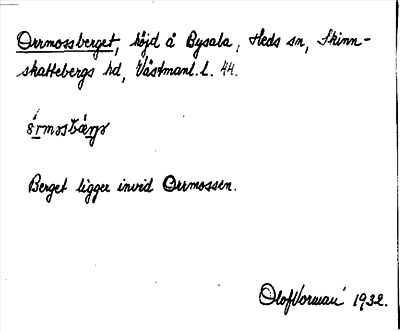 Orrmossberget, höjd å Bysala, Heds sn, Skinn-
skattebergs hd, Västmanl. l. 44.
Berget ligger invid Orrmossen.
Olof Vorman 1932.